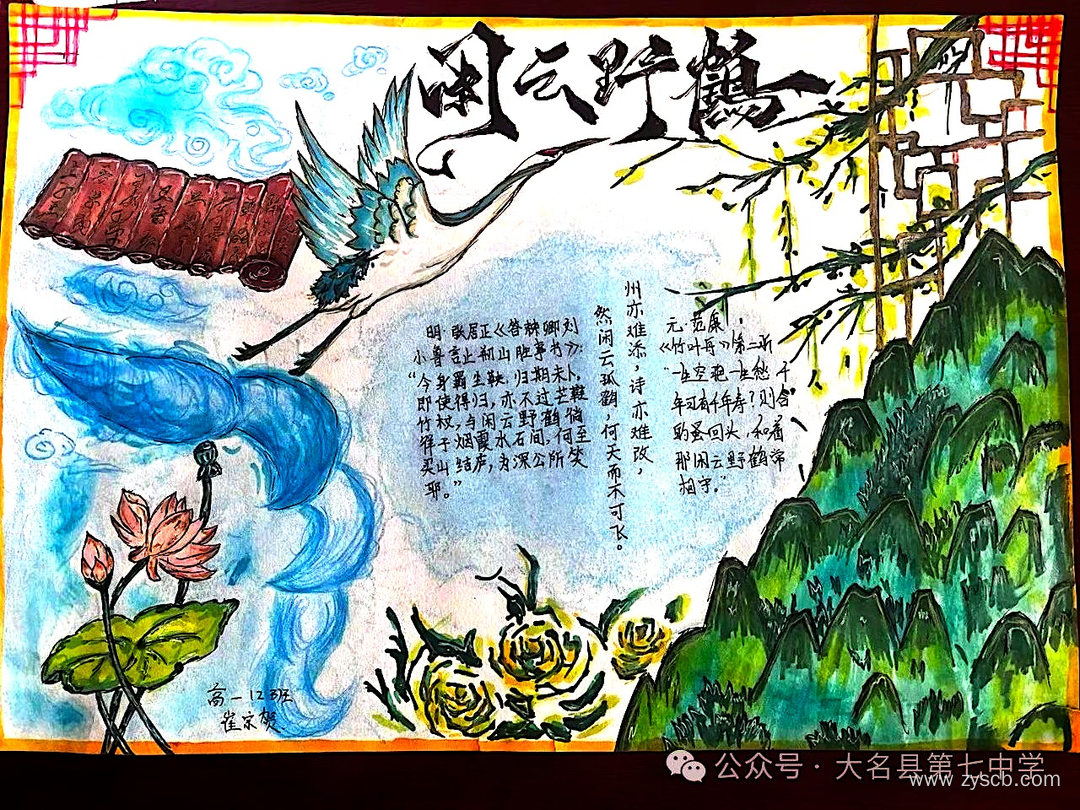 闲云野鹤
明·张居正《答棘卿刘
小鲁言止创山胜事书》:
“今身羁尘鞅,归期未卜,
即使得归,亦不过芒鞋
竹杖,与闲云野鹤徜
徉于烟霞水石间,何至
买山结庐,为深公所笑
耶。”
州亦难添,诗亦难改,
然闲云孤鹤,何天而不可飞。
元·范康
《竹叶舟》第二折
“一生空抱一生愁,千
年可有千年寿?则合
的蚤回头,和着
那闲云野鹤常
相守。”
高一12班
公众号·大名县第七中学
www.zyscb.com